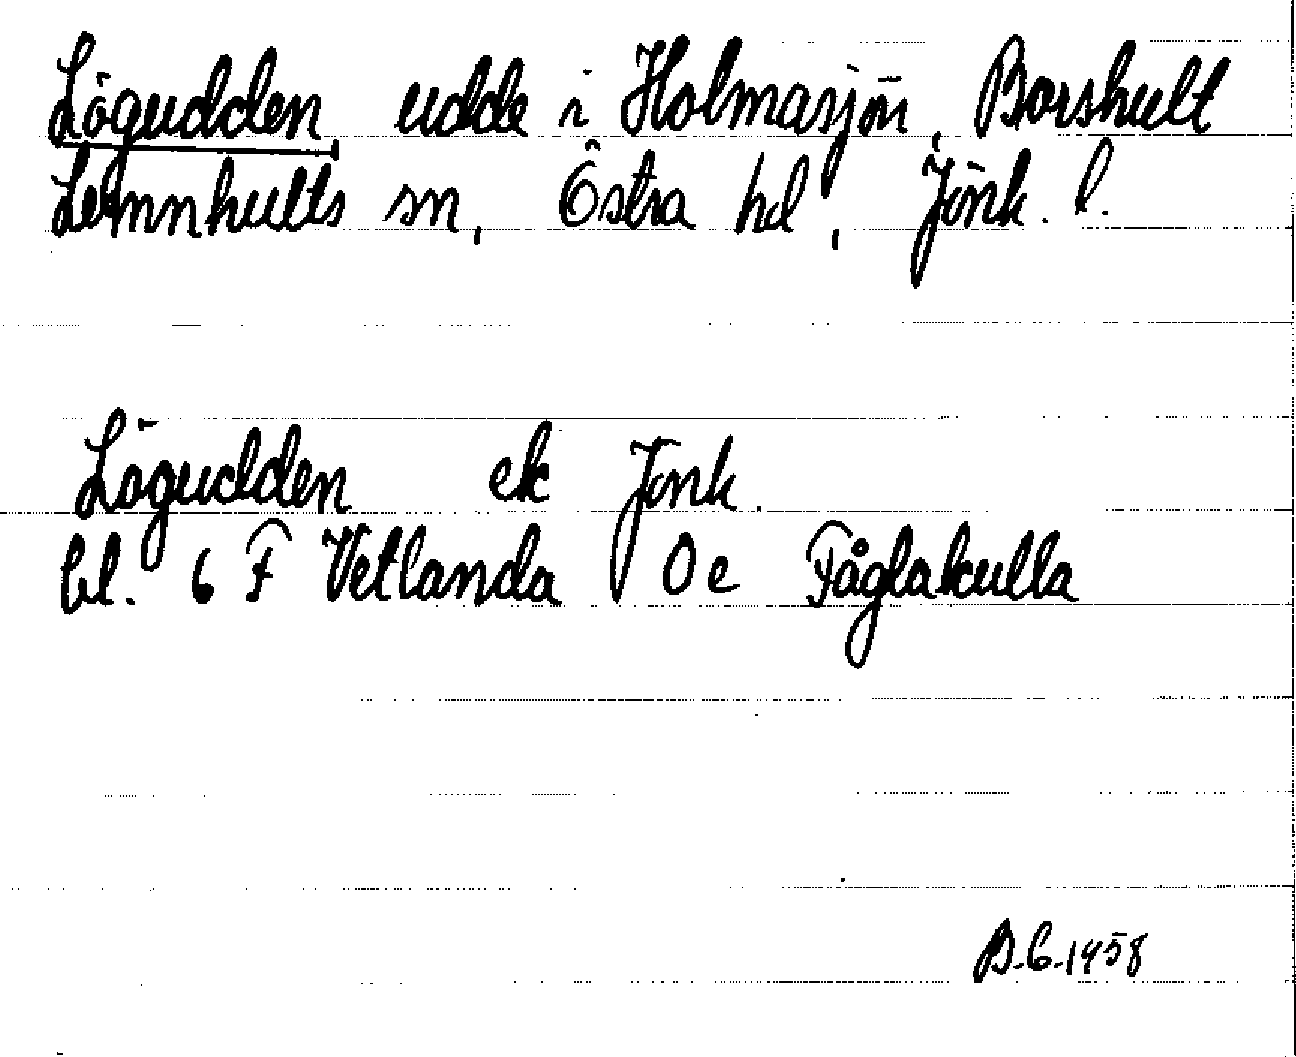 Lögudden, udde i Holmasjön, Borshult
Lemnhults sn, Östra hd, Jönk. l.
Lögudden ek Jönk.
bl. 6 F Vetlanda 0 e Fåglakulla
B.C. 1958